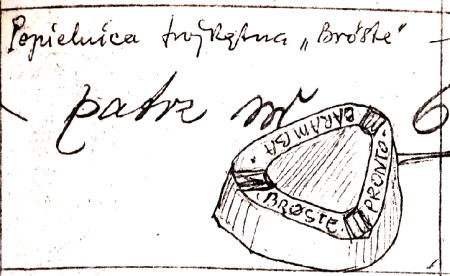 Popielnica trójkątna „Bröste” –
patrz nr 6
CARAMBA
PRONTO
BRØSTE